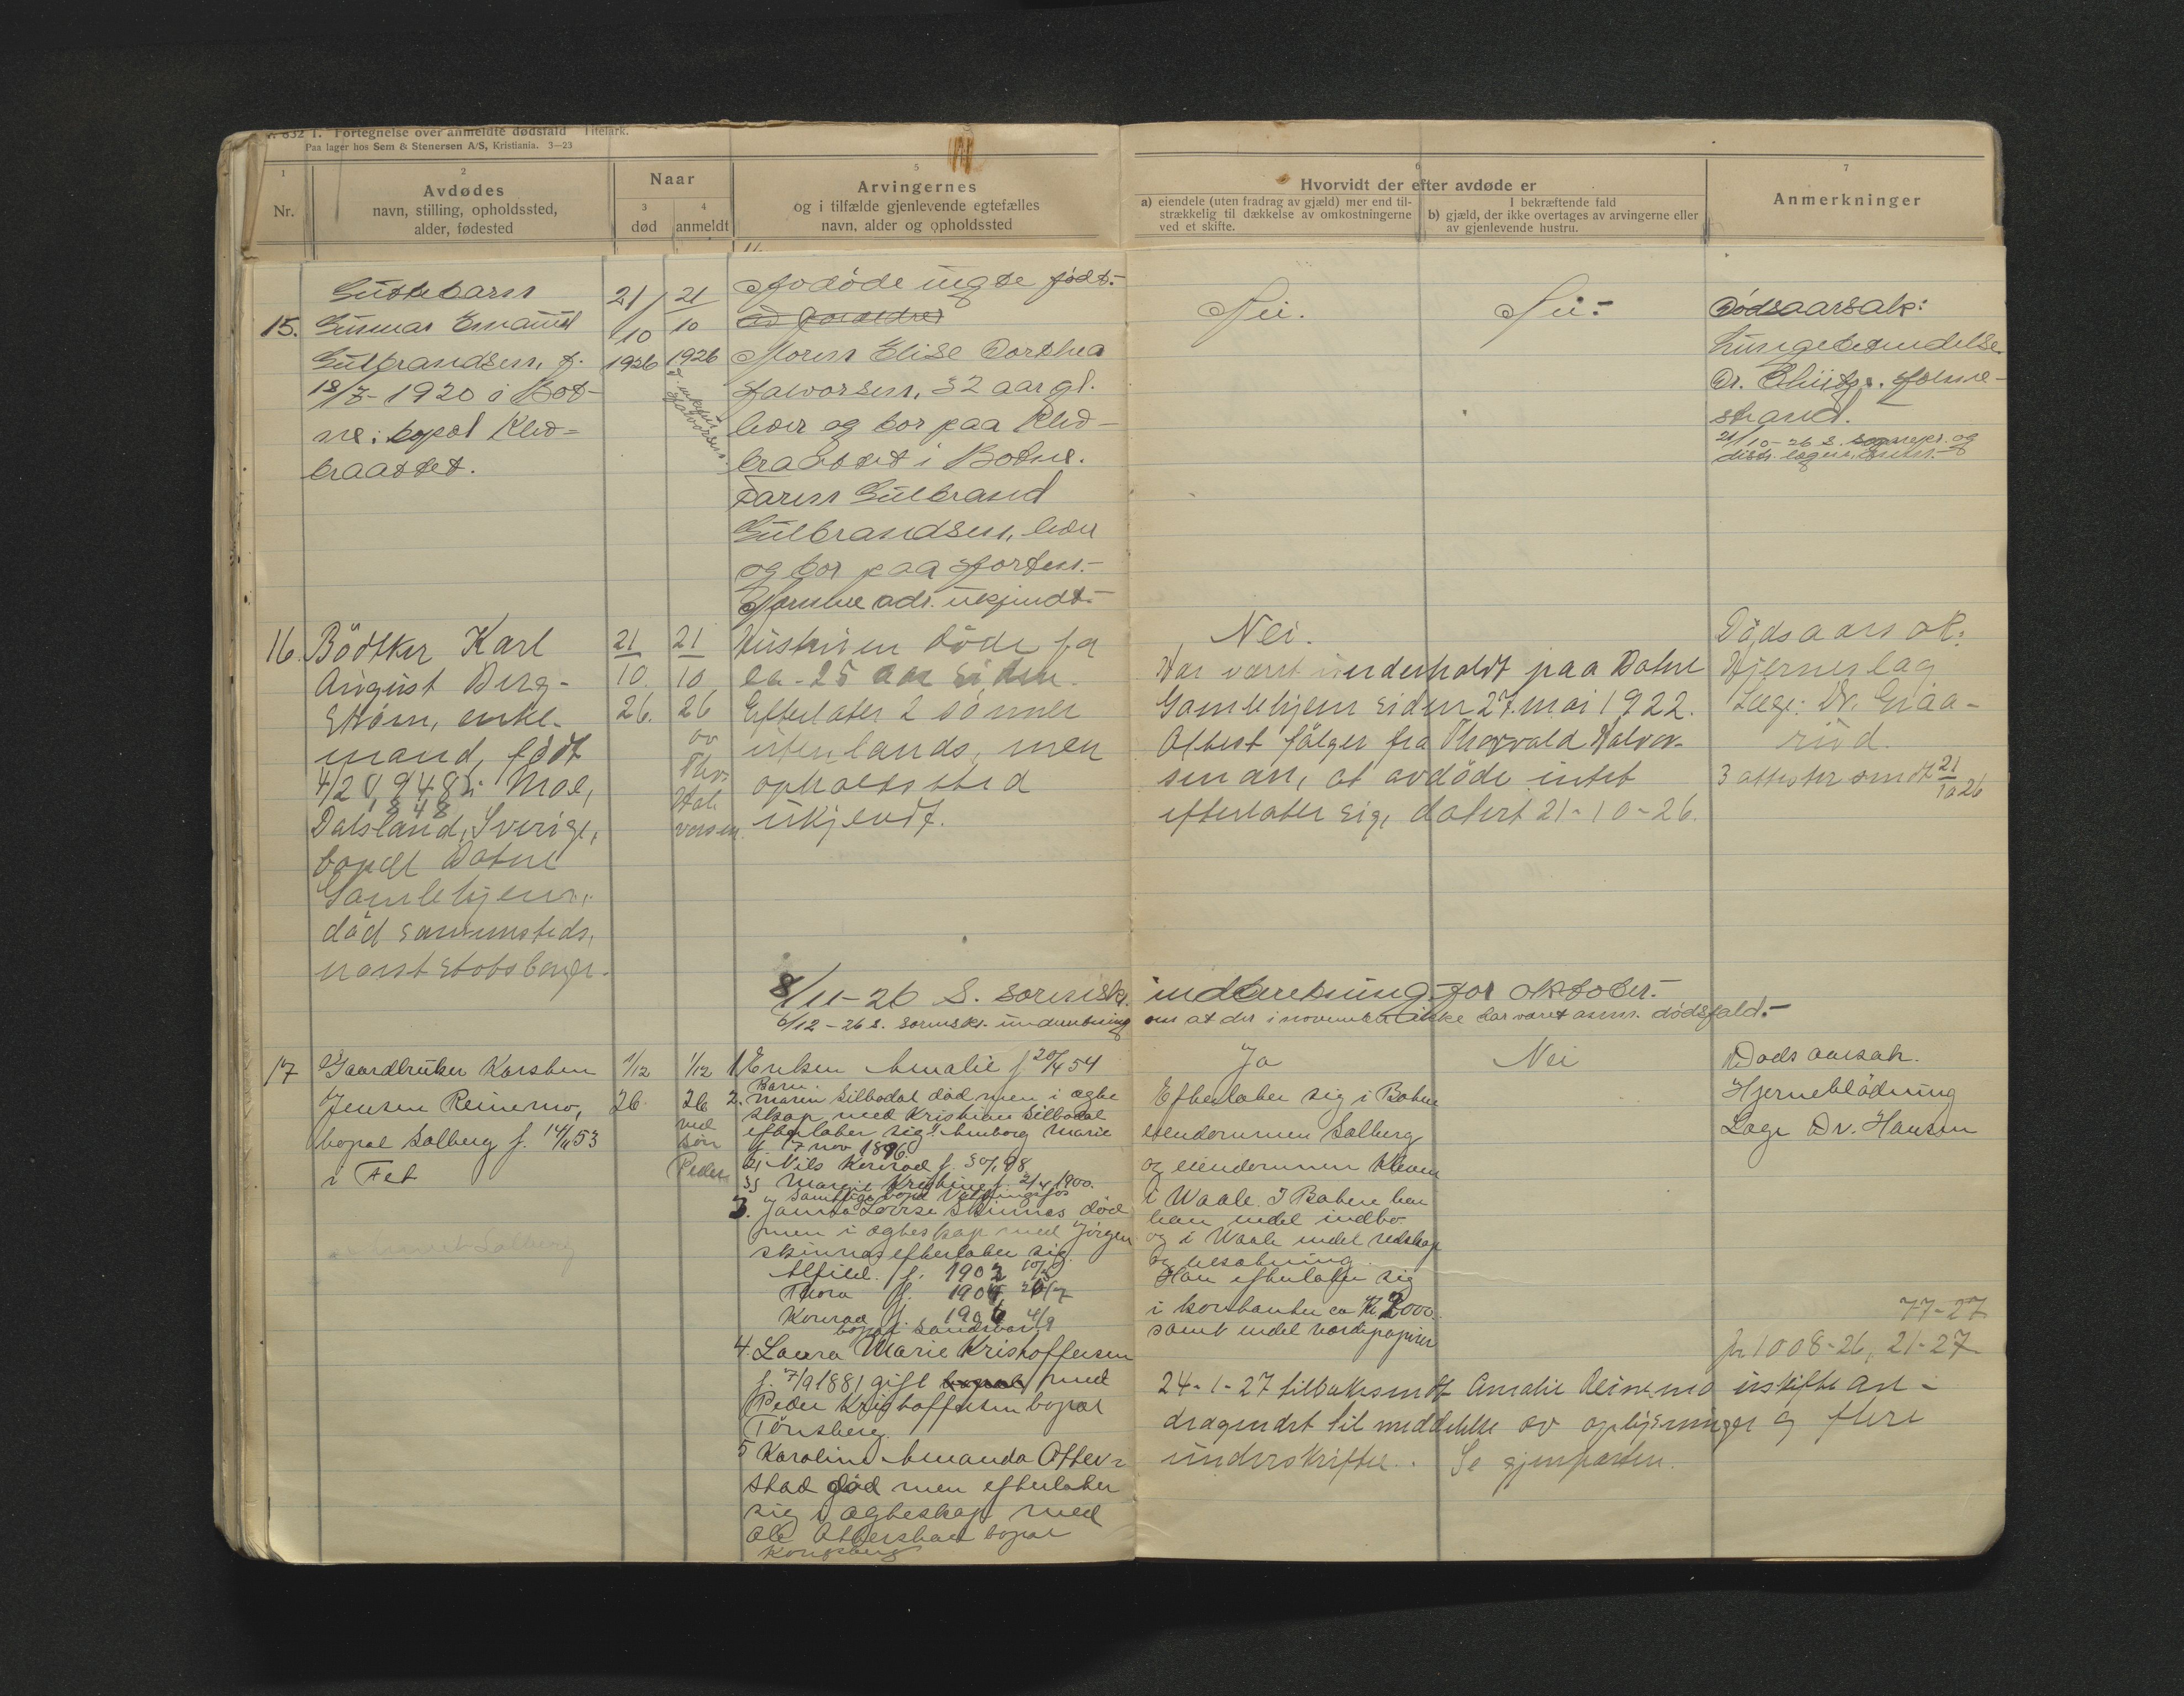 832 1. Fortegnelse over anmeldte dødsfald Titelark.
Paa lager hos Sem & Stenersen A/S, Kristiania. 3—23
1
Nr.
2
Avdødes
navn, stilling, opholdssted,
alder, fødested
Naar
3
død
4
anmeldt
5
Arvingernes
og i tilfælde gjenlevende egtefælles
navn, alder og opholdssted
6
Hvorvidt der efter avdøde er
a) eiendele (uten fradrag av gjæld) mer end til-
strækkelig til dækkelse av omkostningerne
ved et skifte.
I bekræftende fald
b) gjæld, der ikke overtages av arvingerne eller
av gjenlevende hustru.
7
Anmerkninger
11.
15.
Guttebarn
Gunnar Emanuel
Gulbrandsen, f.
18/7- 1920 i Bot-
ne; bopæl Klev-
braattet.
21/10
1926
21/10
1926
Halvorsen.
Avdøde ugte født.-
Moren Elise Dorthea
Halvorsen, 32 aar gl.
lever og bor paa Klev-
braattet i Botne.
Faren Gulbrand
Gulbrandsen, lever
og bor paa Horten.-
Nærmere adr. ukjendt.-
Nei.
Nei.-
Dødsaarsak:
Lungebetændelse.
Dr. Holme-
strand.
21/10-26 s. sognepr. og
distr. lægen
16.
Bödtker Karl
August Berg-
Strøm, enke-
mand, født
i Mol,
Dalsland, Sverige,
bopæl Botne
Gamlehjem,
død sammesteds,
norsk statsborger.
21
10.
26.
21
10
26
av
Thv.
Hal-
vorsen.
Hustruen døde for
ca. 25 aar siden.
Efterlater 2 sønner
utenlands, men
opholdssted
ukjendt.
Nei.
Har vært underholdt paa Botne
Gamlehjem siden 27. mai 1922.
Attest følger fra Thorvald Halvor-
sen om, at avdøde intet
efterlater sig, datert 21-10-26.
Dødsaarsak:
Hjerneslag
Læge: Dr. Graa-
rud.
3 attester sendt 21/10 26
8/11-26 S. sorenskr. indberetning for oktober.-
6/12-26 s. sorenskr. underretning om at der i november ikke har været anm. dødsfald.-
17
Gaardbruker Karsten
Jensen Reinemo,
bopæl Solberg f. 14/11 53
i Fet
1/12
26
1/12
26
ved
søn
Peder
1 Enken Amalie f 20/4 54
Barn.
2. Maren Silbodal död men i ægte
skap med Kristian Silbodal
efterlater sig 1. Amborg Marie
f. 17 nov 1896.
2. Nils Konrad f. 30/1 98
3. Margit Kristine f. 2/4 1900.
samtlige bopæl
3. Janna Lovise Skinnes död
men i ægteskap med Jörgen
Skinnes efterlater sig
Alfild. f. 1902
Thora f. 1904
Konrad f. 1906 4/9
bopæl Sandsvær
4. Laura Marie Kristoffersen
f. 7/9 1881 gift med
Peder Kristoffersen bopæl
Tönsberg.
5 Karoline Amanda Otter-
stad död men efterlater
sig i ægteskap med
Ole Otterstad bopæl
Kongsberg
Ja
Efterlater sig i Botne
eiendommen Solberg
og eiendommen Kleven
i Waale. I Botne har
han endel indbo
og i Waale endel redskap
og besætning.
Han efterlater sig
i kontanter ca Kr 2000.
samt endel værdipapirer
Nei
Dødsaarsak.
Hjerneblödning
Læge Dr. Hansen
77-27
1008-26, 21-27
24-1-27 tilbakesendt Amalie Reinemo uskifte an-
dragendet til meddelelse av oplysninger og flere
underskrifter. Se gjenparten.